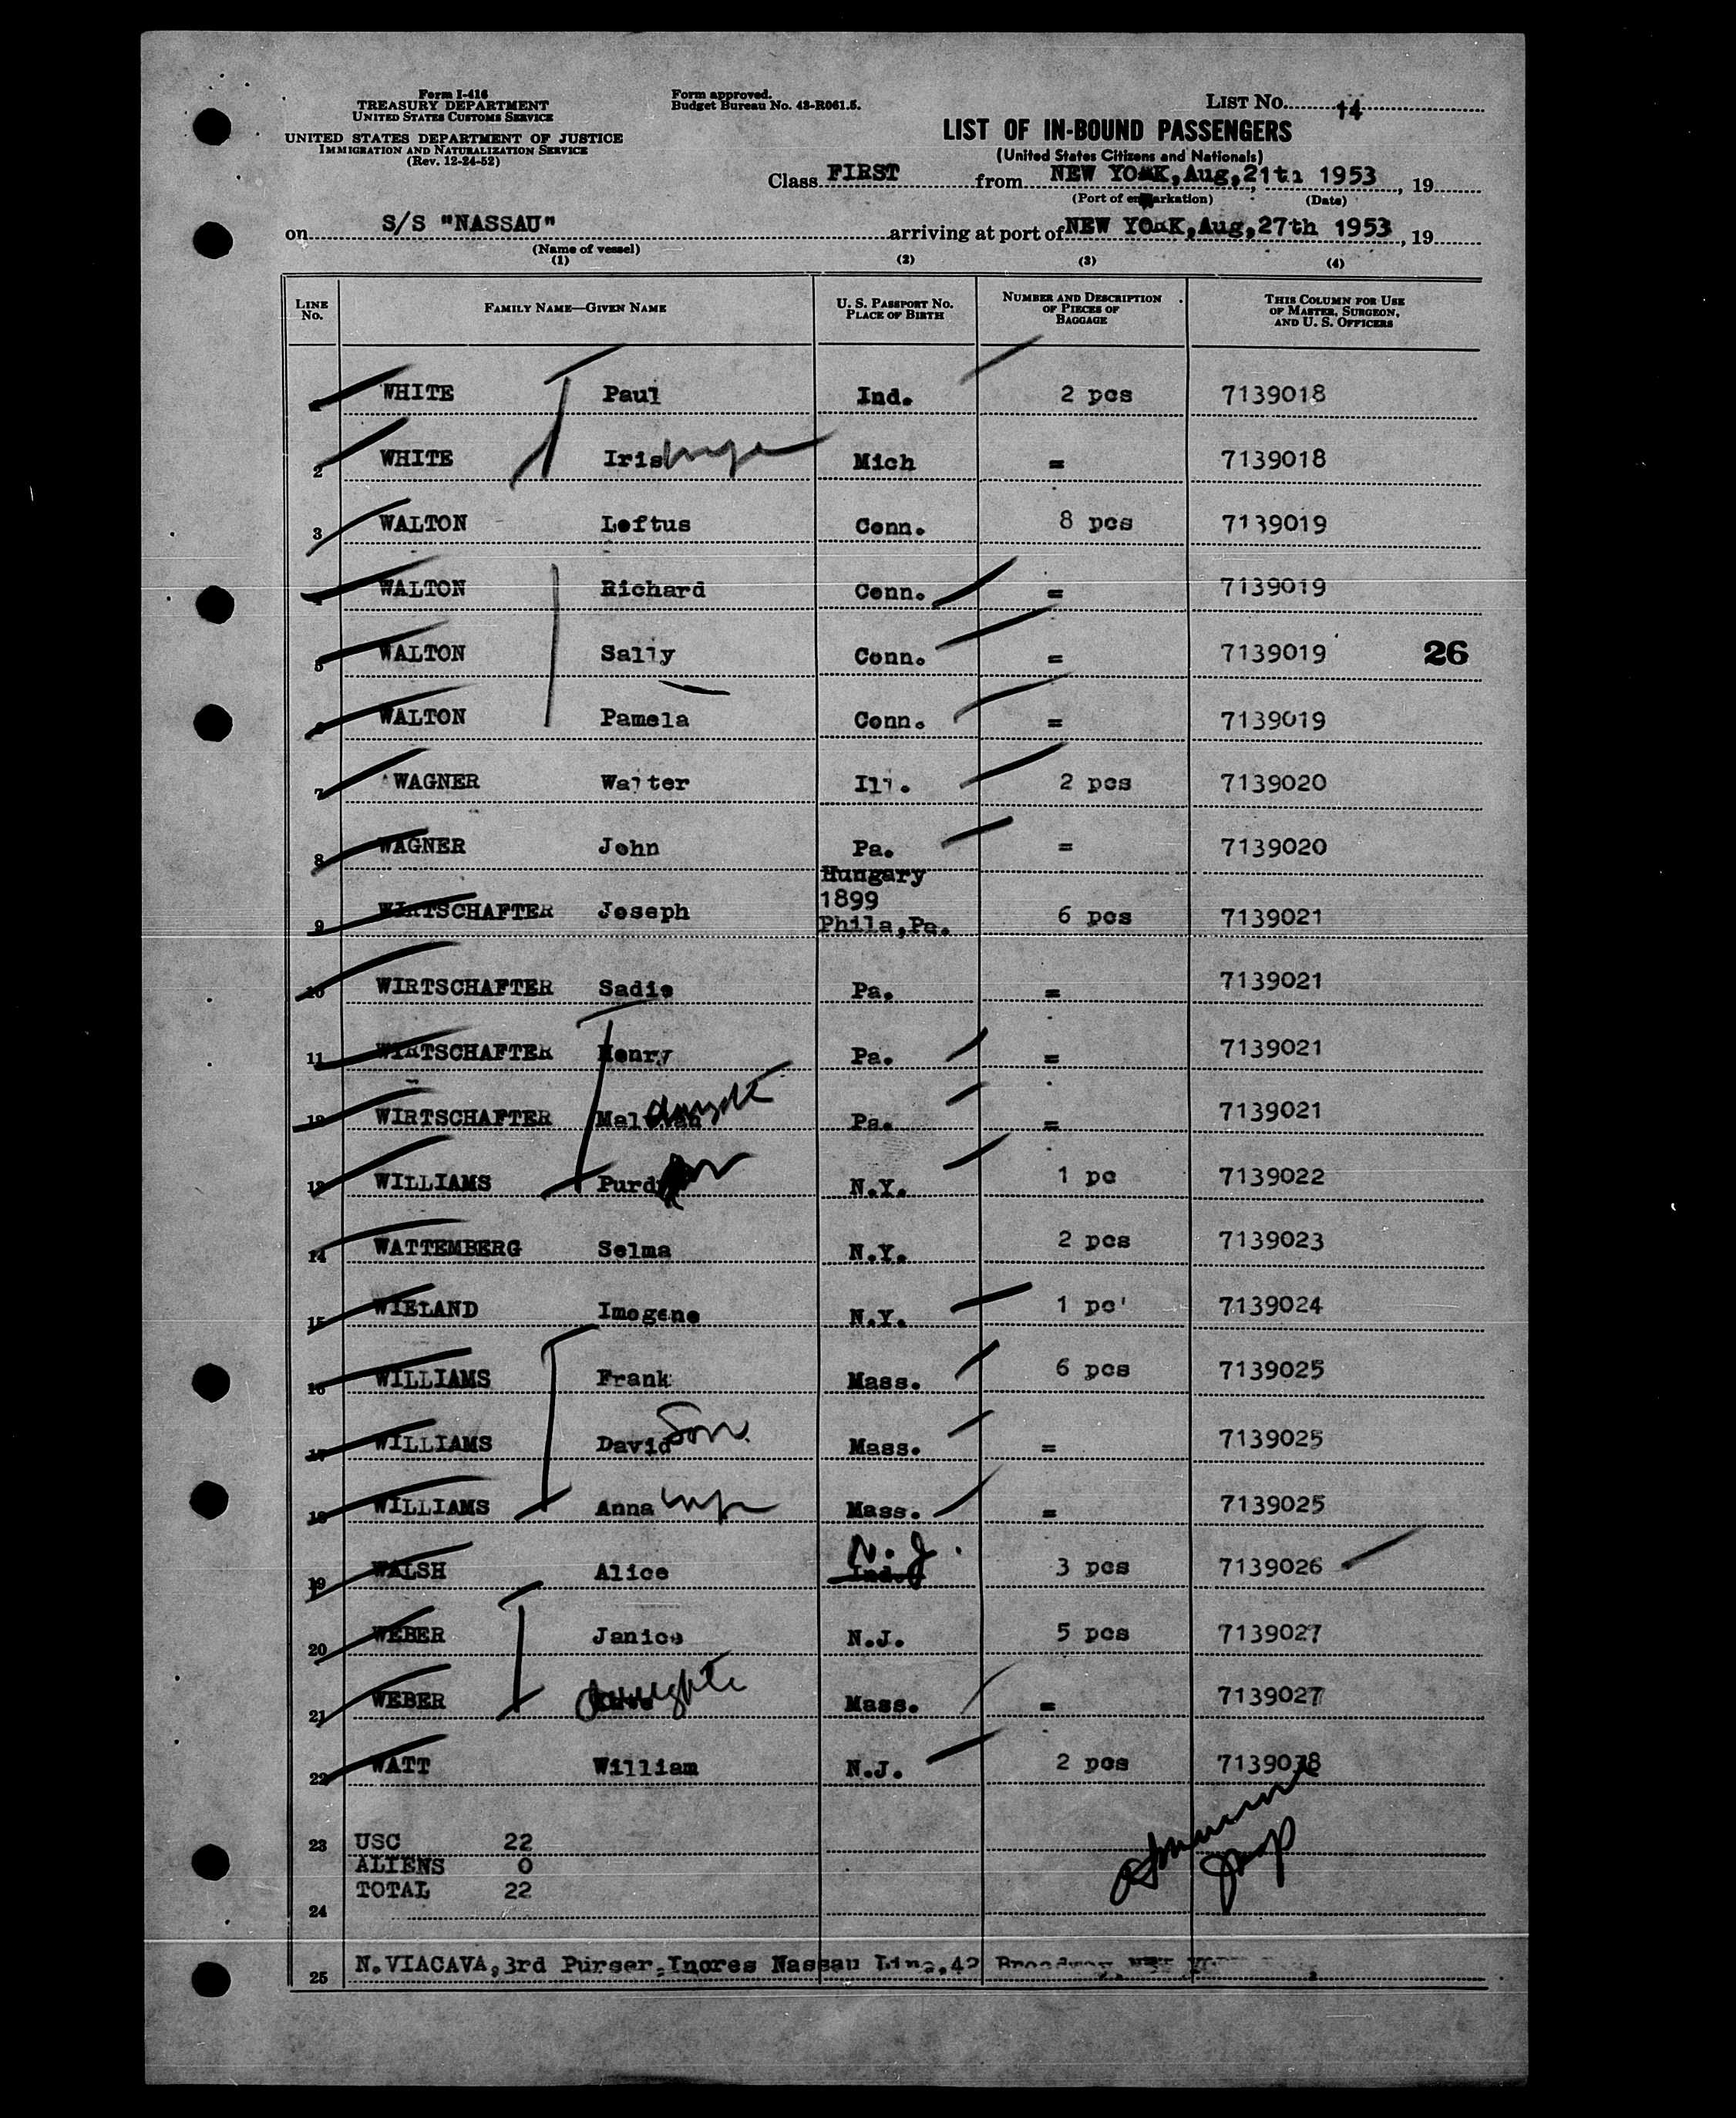 Form I-416
TREASURY DEPARTMENT
UNITED STATES CUSTOMS SERVICE
UNITED STATES DEPARTMENT OF JUSTICE
IMMIGRATION AND NATURALIZATION SERVICE
(Rev. 12-24-52)
Form approved.
Budget Bureau No. 43-R061.5.
LIST NO. 14
LIST OF IN-BOUND PASSENGERS
(United States Citizens and Nationals)
Class FIRST from NEW YORK, Aug, 21th 1953, 19
(Port of embarkation) (Date)
on S/S "NASSAU" arriving at port of NEW YORK, Aug, 27th 1953, 19
(Name of vessel)
(1) (2) (3) (4)
LINE NO. FAMILY NAME—GIVEN NAME U. S. PASSPORT NO. PLACE OF BIRTH NUMBER AND DESCRIPTION OF PIECES OF BAGGAGE THIS COLUMN FOR USE OF MASTER, SURGEON, AND U. S. OFFICERS
1 WHITE Paul Ind. 2 pcs 7139018
2 WHITE Iris Mich = 7139018
3 WALTON Loftus Conn. 8 pcs 7139019
4 WALTON Richard Conn. = 7139019
5 WALTON Sally Conn. = 7139019 26
6 WALTON Pamela Conn. = 7139019
7 WAGNER Walter Ill. 2 pcs 7139020
8 WAGNER John Pa. = 7139020
Hungary
1899
9 WIRTSCHAFTER Joseph Phila,Pa. 6 pcs 7139021
10 WIRTSCHAFTER Sadie Pa. = 7139021
11 WIRTSCHAFTER Henry Pa. = 7139021
12 WIRTSCHAFTER Pa. = 7139021
13 WILLIAMS N.Y. 1 pc 7139022
14 WATTEMBERG Selma N.Y. 2 pcs 7139023
15 WIELAND Imogene N.Y. 1 pc' 7139024
16 WILLIAMS Frank Mass. 6 pcs 7139025
17 WILLIAMS David Son Mass. = 7139025
18 WILLIAMS Anna Mass. = 7139025
N.J.
19 WALSH Alice Ind. 3 pcs 7139026
20 WEBER Janice N.J. 5 pcs 7139027
21 WEBER Mass. = 7139027
22 WATT William N.J. 2 pcs
23 USC 22
ALIENS 0
TOTAL 22
24
25 N.VIACAVA,3rd Purser, Incres Nassau Line,42 Broadway, NEW YORK